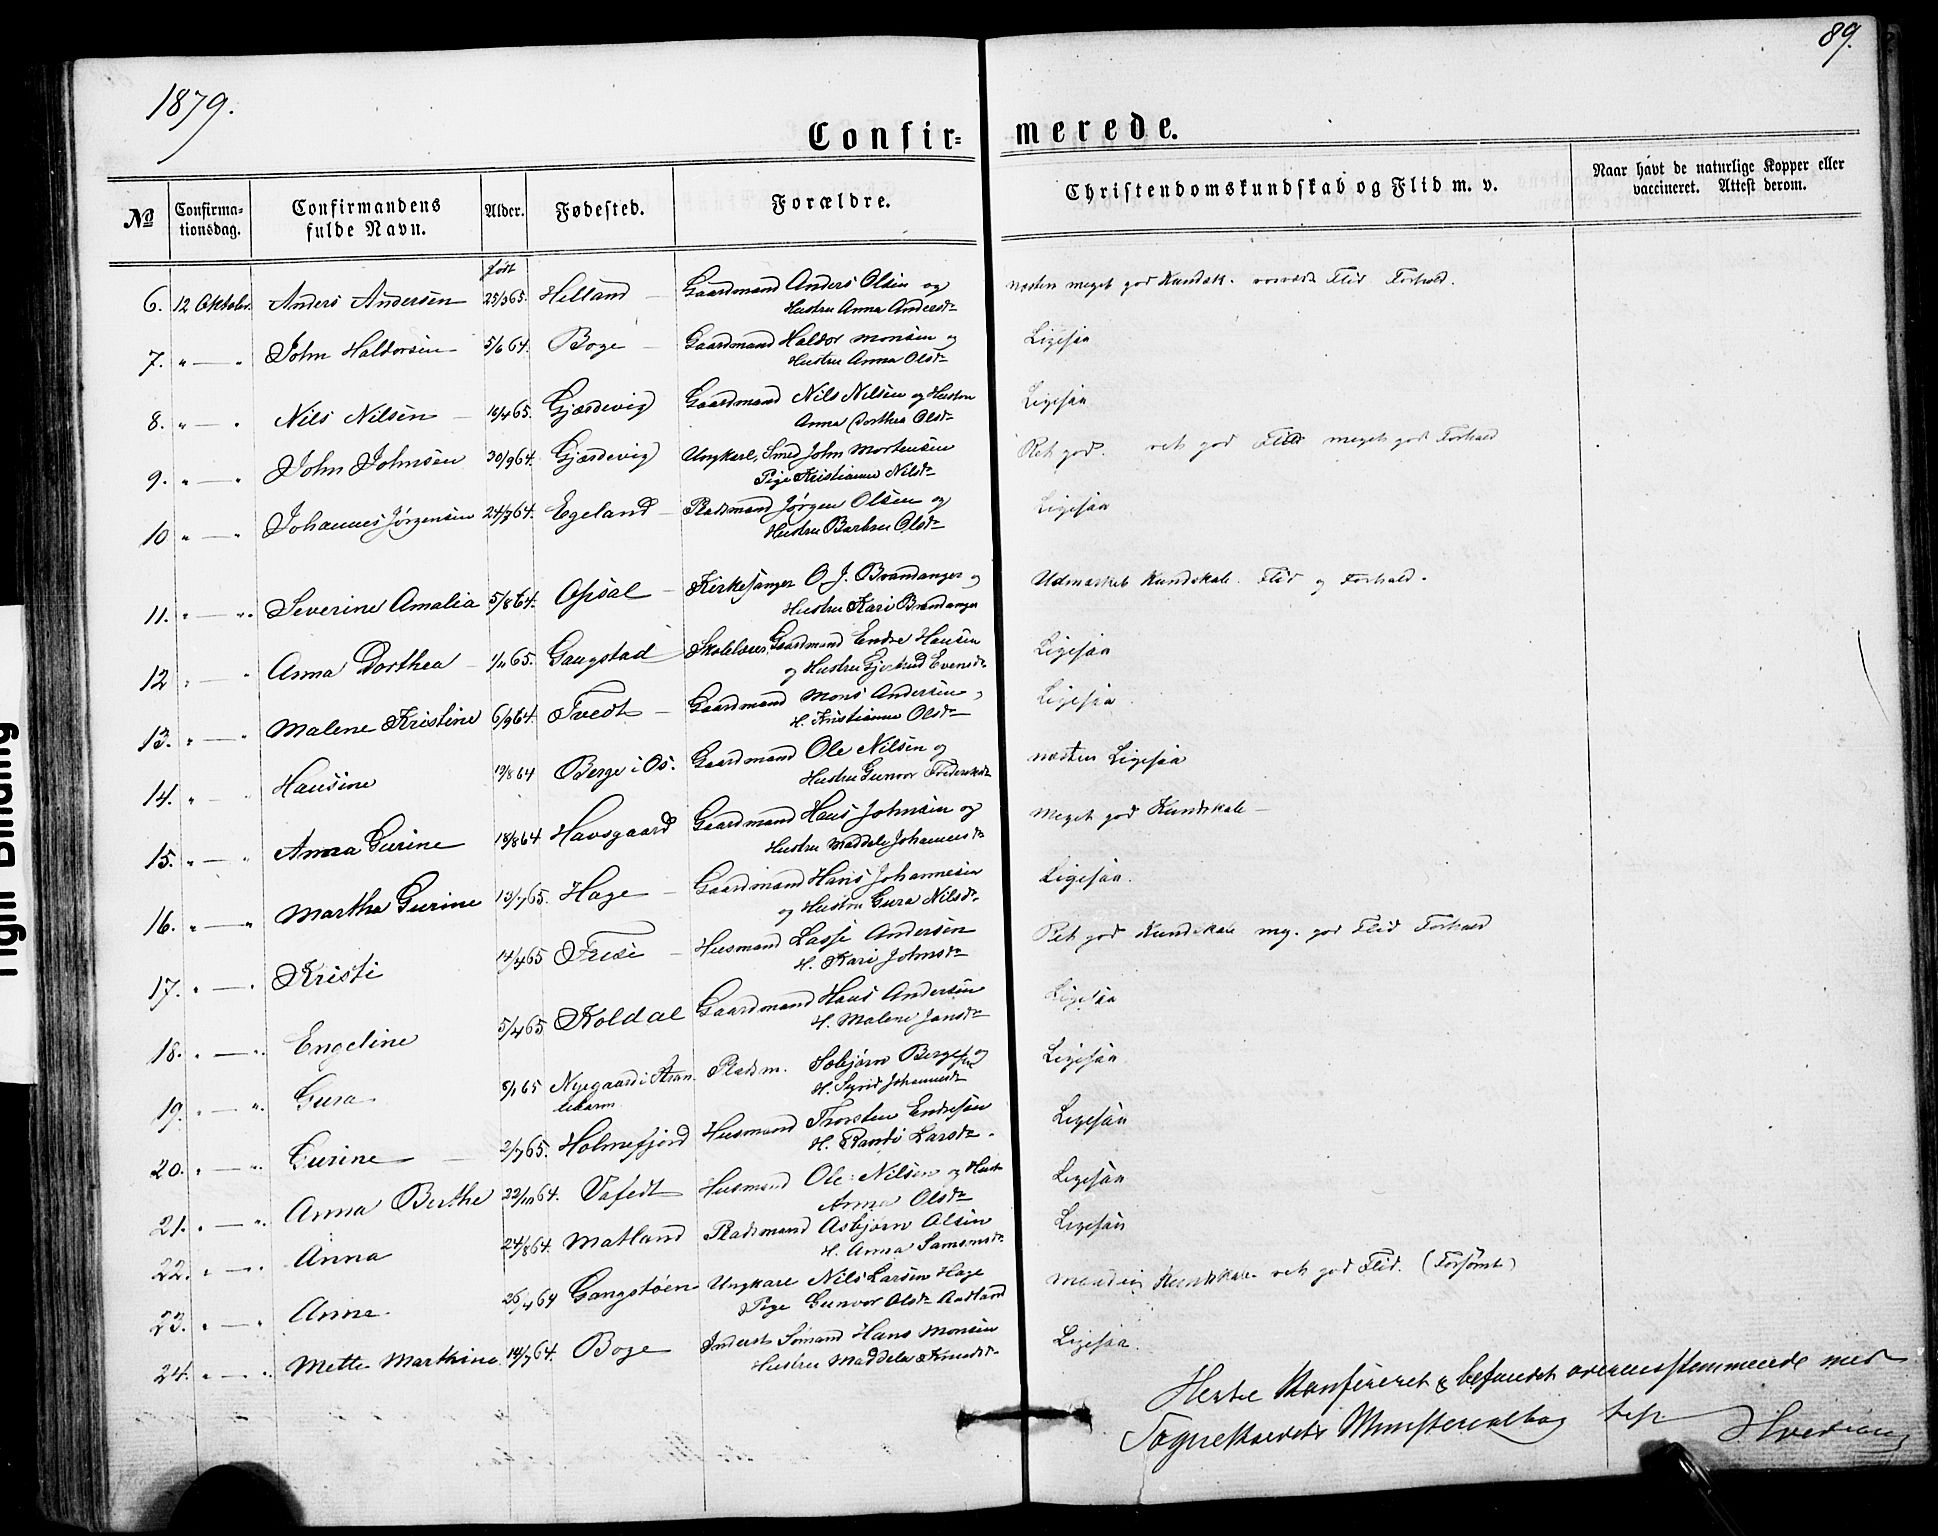 89.
1879.
Confir- merede.
No Confirma-tionsdag. Confirmandens fulde Navn. Alder. Fødested. Forældre. Christendomskundskab og Flid m. v. Naar havt de naturlige Kopper eller vaccineret. Attest derom.
født
6. 12 Oktober Anders Andersen 25/3 65. Helland — Gaardmand Anders Olsen og næsten meget god Kundsk. Flid Forhold.
Hustru Anna Andersdr
7. " — " John Haldorsen 5/6 64. Boge — Gaardmand Haldor Monsen og Ligesaa
Hustru Anna Olsdr
8. " — " Nils Nilsen — 18/4 65. Gjærdevig Gaardmand Nils Nilsen og Hustru Ligesaa
Anna Dorthea Olsdr
9. " — " John Johnsen 30/9 64. Gjærdevig Ungkarl, Smed John Mortensen Ret god. ret god Flid meget god Forhold
Pige Kristianne Nilsdr
10 " — " Johannes Jørgensen 24/7 64. Egeland — Pladsmand Jørgen Olsen og Ligesaa
Hustru Barbra Olsdr
11. " — " Severine Amalia 5/8 64. Opsal — Kirkesanger O. J. Brandanger og Udmærket Kundskab. Flid og Forhold.
Hustru Kari Brandanger
12 " — " Anna Dorthea — 1/11 65. Gaugstad Skolelærer, Gaardmand Endre Hansen Ligesaa
og Hustru Gjertrud Evensdr
13. " — " Malene Kristine 6/9 64. Tvedt — Gaardmand Mons Andersen og Ligesaa.
H. Kristianne Olsdr
14. " — " Hansine 19/8 64 Berge i Os. Gaardmand Ole Nilsen og næsten Ligesaa
Hustru Gunvor
15. " — " Anna Gurine 18/8 64 Havsgaard Gaardmand Hans Johnsen og Meget god Kundskab —
Hustru Maddele Johannesdr
16. " — " Martha Gurine 13/7 65. Hage — Gaardmand Hans Johannesen Ligesaa.
og Hustru Gura Nilsdr
17. " — " Kristi 14/4 65 — Husmand Lasse Andersen Ret god Kundskab mg. god Flid Forhold
H. Kari Johnsdr
18. " — " Engeline 5/4 65 Koldal Gaardmand Hans Andersen Ligesaa
H. Malene Jansdr
19. " — " Gura 8/1 65 Nygaard i Stran Pladsm. Torbjørn Bergesen og Ligesaa
lebarm H. Sigrid Johannesdr
20. " — " Gurine — 2/7 65. Holmefjord Husmand Thorsten Endresen Ligesaa
H. Randi Larsdr.
21. " — " Anna Berthe 22/10 64. Vafedt Husmand Ole Nilsen og Hustr Ligesaa
Anna Olsdr
22. " — " Anna 24/8 64. Matland Pladsmand Asbjørn Olsen Ligesaa
H. Anna Samsonsdr.
23. " — " Anne 26/4 64 Gangstøen Ungkarl Nils Larsen Hage Kundskab ret god Flid. (Forsømt)
Pige Gunvor Olsdr Aadland
24. " — " Mette Marthina 14/7 64. Boge Inderst Sømand Hans Monsen Ligesaa.
Hustru Maddela Knudsdr.
Konfereret & befundet overensstemmende med
Sogneskaldets Ministerialbog